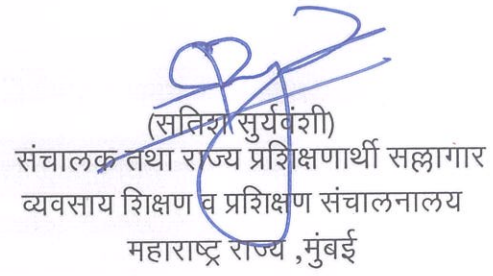 (सतिश सुर्यवंशी)
संचालक तथा राज्य प्रशिक्षणार्थी सल्लागार
व्यवसाय शिक्षण व प्रशिक्षण संचालनालय
महाराष्ट्र राज्य ,मुंबई